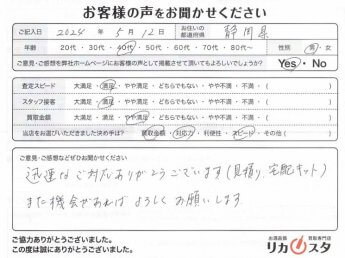 お客様の声をお聞かせください
ご記入日 2024年 5月 12日 お住いの都道府県 静岡県
年齢 20代・30代・40代・50代・60代・70代・80代〜 性別 男・女
ご意見・ご感想を弊社ホームページにお客様の声として掲載させて頂いてもよろしいでしょうか? Yes・No
査定スピード 大満足・満足・やや満足・どちらでもない・やや不満・不満・( )
スタッフ接客 大満足・満足・やや満足・どちらでもない・やや不満・不満・( )
買取金額 大満足・満足・やや満足・どちらでもない・やや不満・不満・( )
当店をお選びいただきました決め手は? 買取金額・対応力・利便性・スピード・その他( )
ご意見・ご感想などぜひお聞かせください
迅速なご対応ありがとうございます(見積り、宅配キット)
また機会があれば よろしくお願いします
ご協力ありがとうございました。
この度は誠にありがとうございました。
お酒高価 買取専門店
リカスタ